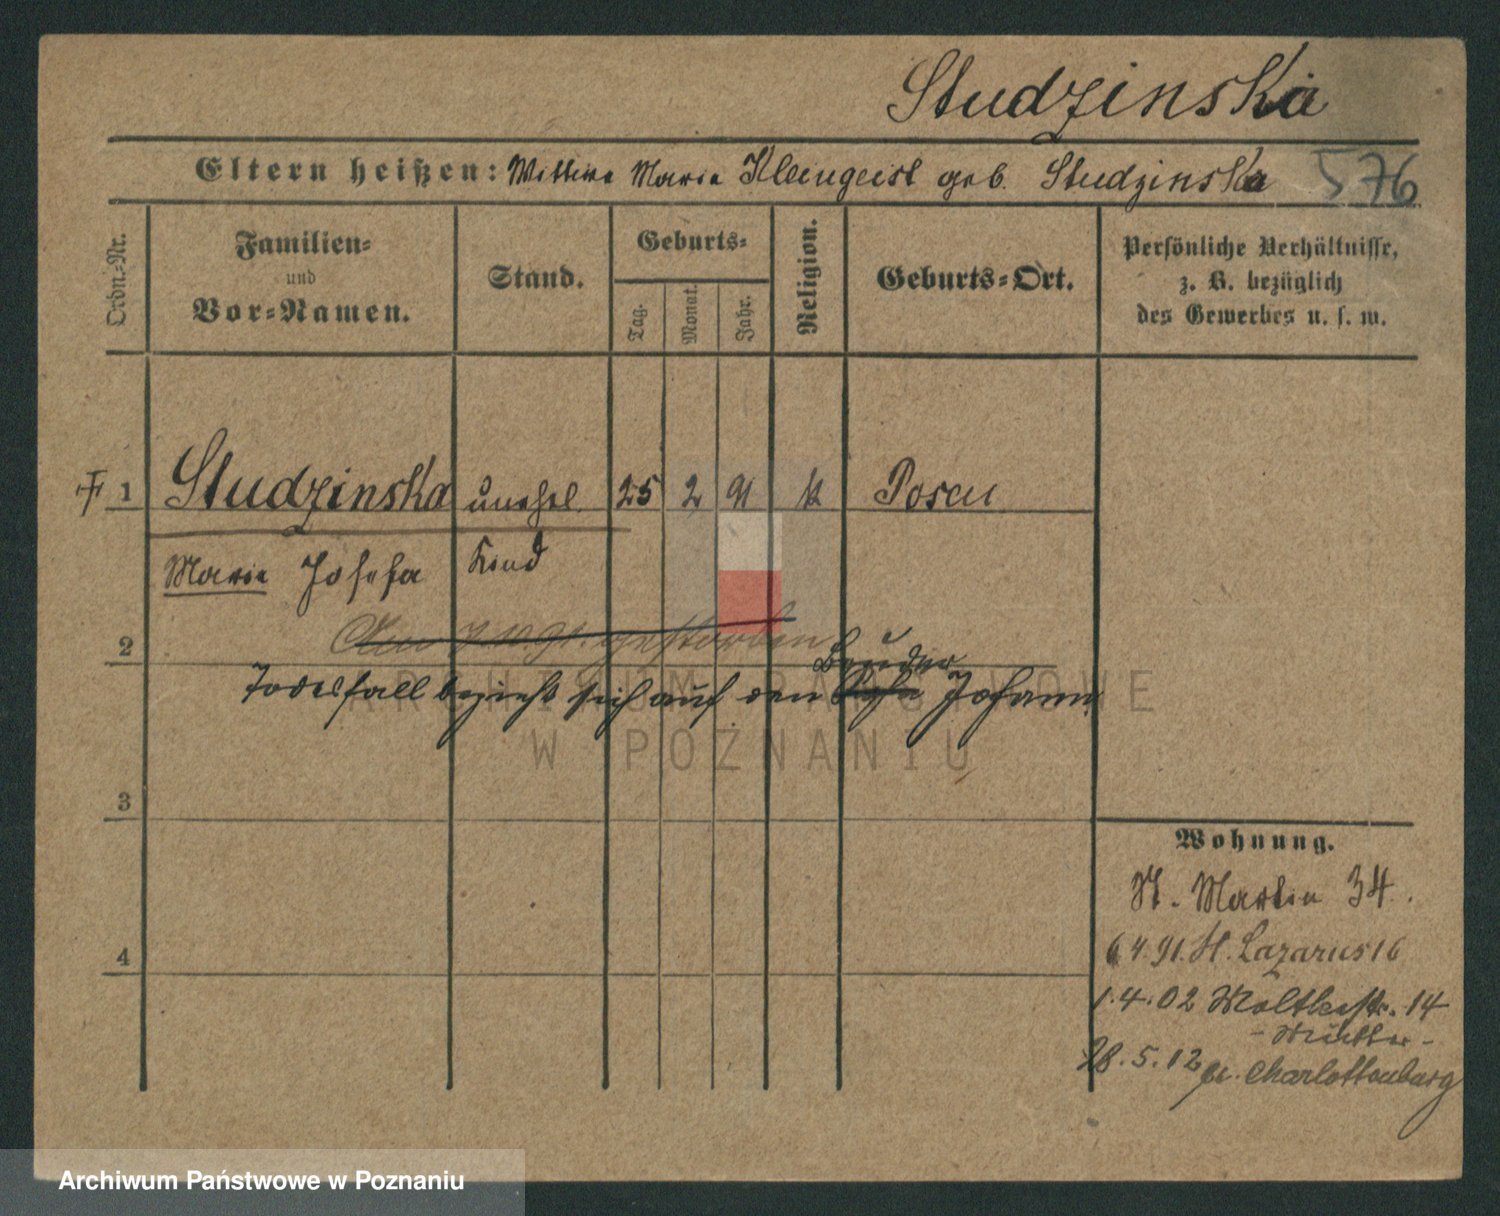 Studzinska
Eltern heißen: Wittwe Marie Kleingeist geb. Studzinska 576
Ordn.-Nr.
Familien-
und
Vor-Namen.
Stand.
Geburts-
Tag.
Monat.
Jahr.
Religion.
Geburts-Ort.
Persönliche Verhältnisse,
z. B. bezüglich
des Gewerbes u. s. w.
1 Studzinska unehel. 25 2 91 k Posen
Marie Josefa Kind
gestorben
2
Bruder
Todesfall bezieht sich auf den Sohn Johann
ARCHIWUM PAŃSTWOWE
W POZNANIU
3
Wohnung.
St. Martin 34.
6 4. 91. St. Lazarus 16
4
1. 4. 02 Moltkestr. 14
- Mutter -
28. 5. 12 Charlottenburg
Archiwum Państwowe w Poznaniu